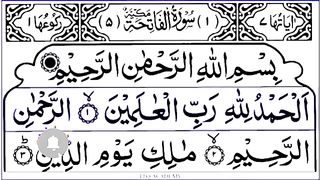 اٰیاتها ۷ (۱) سُوْرَةُ الْفَاتِحَةِ مَكِّیَّةٌ (۵) رکوعها ۱
بِسْمِ اللّٰهِ الرَّحْمٰنِ الرَّحِیْمِ
اَلْحَمْدُ لِلّٰهِ رَبِّ الْعٰلَمِیْنَ ۱ الرَّحْمٰنِ
الرَّحِیْمِ ۲ مٰلِكِ یَوْمِ الدِّیْنِ ۳